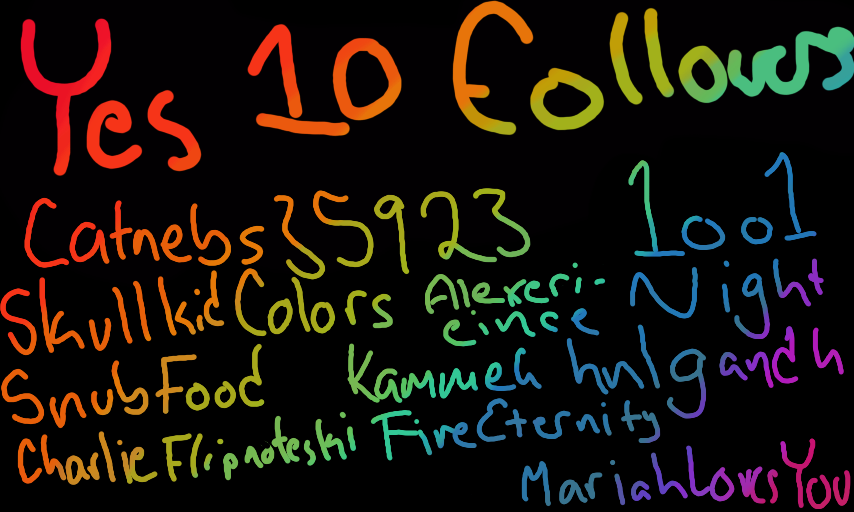 Yes 10 Followers
Catnebs35923 1001
SkullkidColors Alexeri-
cince Night
SnubFood Kammeh hnlgandh
CharlieFlipnoteski FireEternity
MariahLovesYou